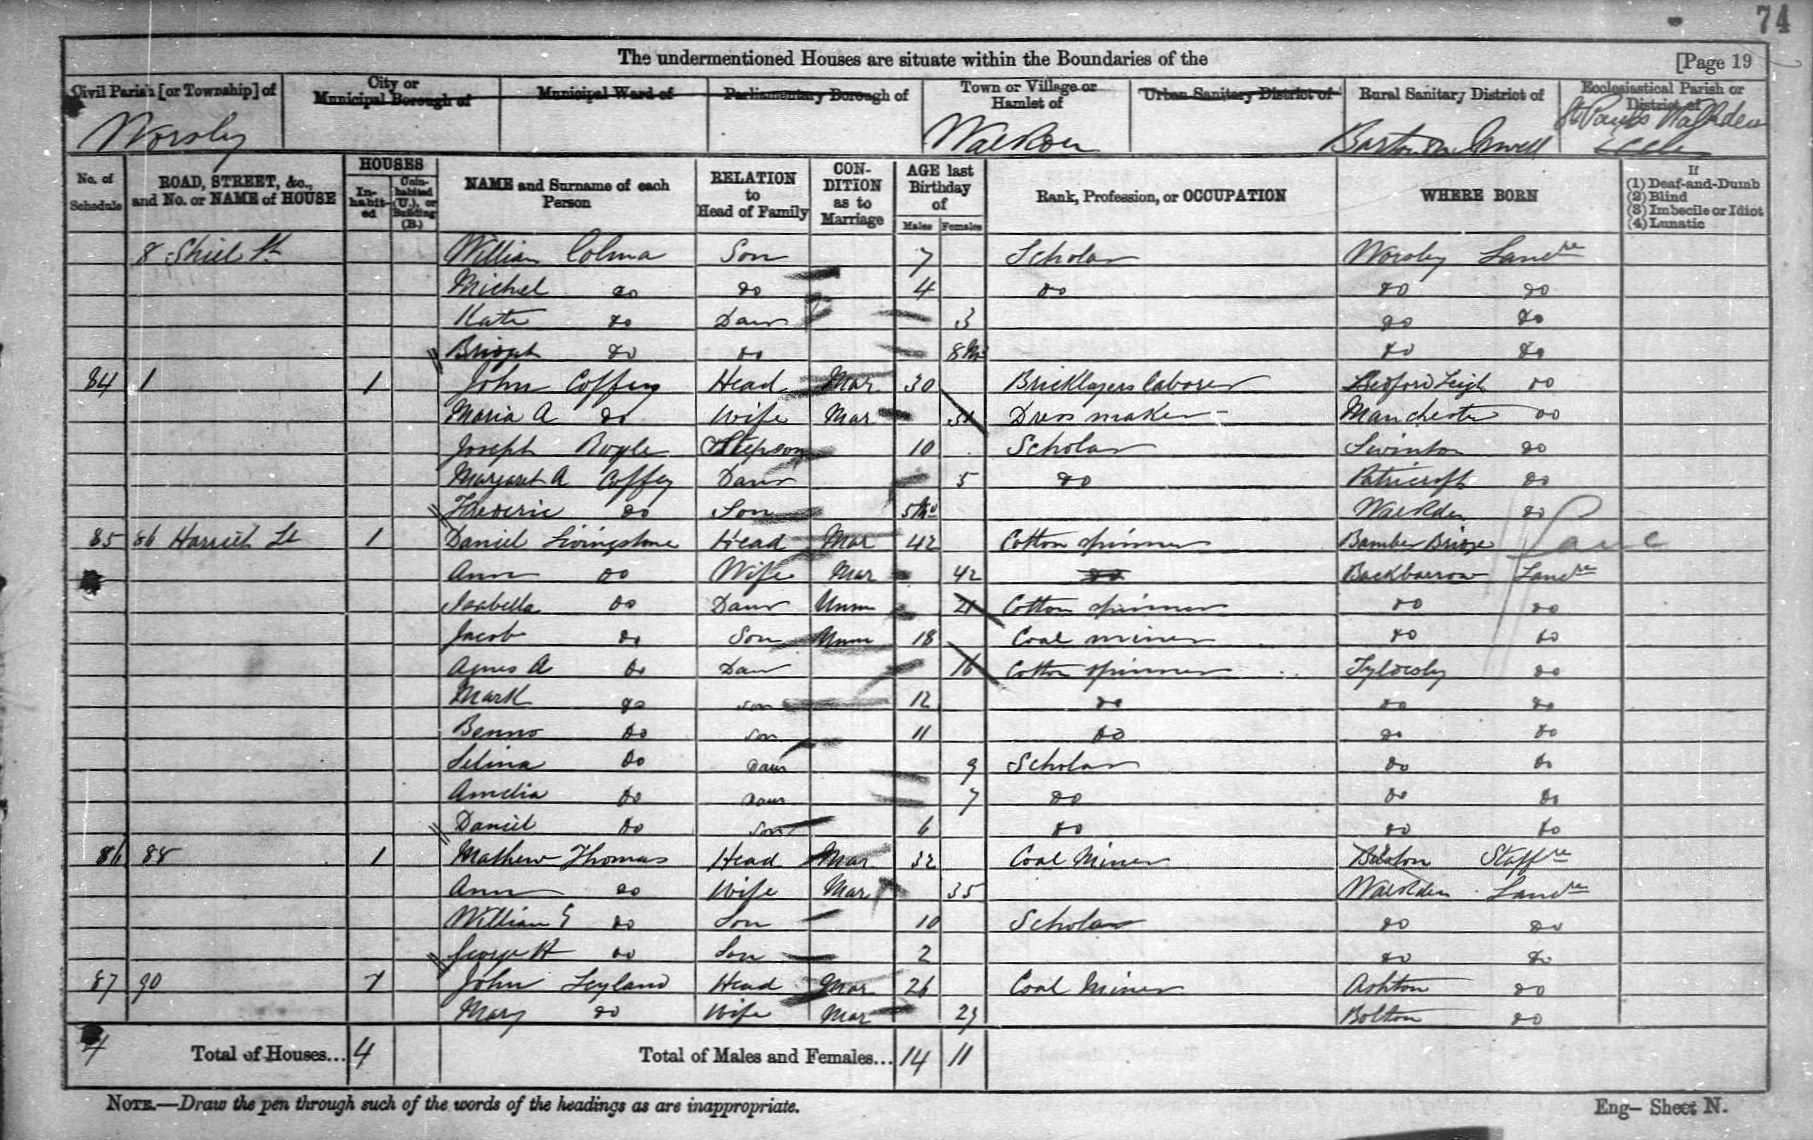 74
The undermentioned Houses are situate within the Boundaries of the [Page 19
Civil Parish [or Township] of City or Municipal Borough of Municipal Ward of Parliamentary Borough of Town or Village or Hamlet of Urban Sanitary District of Rural Sanitary District of Ecclesiastical Parish or District of
Worsley Walkden Barton on Irwell St Pauls Walkden
No. of Schedule ROAD, STREET, &c., and No. or NAME of HOUSE HOUSES Inhabited Uninhabited (U.), or Building (B.) NAME and Surname of each Person RELATION to Head of Family CONDITION as to Marriage AGE last Birthday of Males Females Rank, Profession, or OCCUPATION WHERE BORN If (1) Deaf-and-Dumb (2) Blind (3) Imbecile or Idiot (4) Lunatic
8 Shiel St William Colma Son 7 Scholar Worsley Lancre
Michel do do 4 do do do
Kate do Daur 3 do do
do do 8 do do
84 1 1 John Coffey Head Mar 30 Bricklayers laborer Bedford Leigh do
Maria A do Wife Mar Dress maker Manchester do
Joseph Boyle Stepson 10 Scholar Swinton do
Margaret A Coffey Daur 5 do Patricroft do
Frederic do Son 5Mo Walkden do
85 86 Harriet St 1 Daniel Livingstone Head Mar 42 Cotton spinner Bamber Bridge Lanc
Ann do Wife Mar 42 do Backbarrow Lancre
Isabella do Daur Unm 21 Cotton spinner do do
Jacob do Son Unm 18 Coal miner do do
Agnes A do Daur 16 Cotton spinner Tyldesley do
Mark do son 12 do do do
Benno do son 11 do do do
Selina do Daur 9 Scholar do do
Amelia do Daur 7 do do do
Daniel do Son 6 do do do
86 88 1 Mathew Thomas Head Mar 32 Coal Miner Bilston Staffre
Ann do Wife Mar 35 Walkden Lancre
William E do Son 10 Scholar do do
George H do Son 2 do do
87 90 1 John Leyland Head Mar 26 Coal Miner Ashton do
Mary do Wife Mar 29 Bolton do
4 Total of Houses... 4 Total of Males and Females... 14 11
NOTE.—Draw the pen through such of the words of the headings as are inappropriate. Eng— Sheet N.